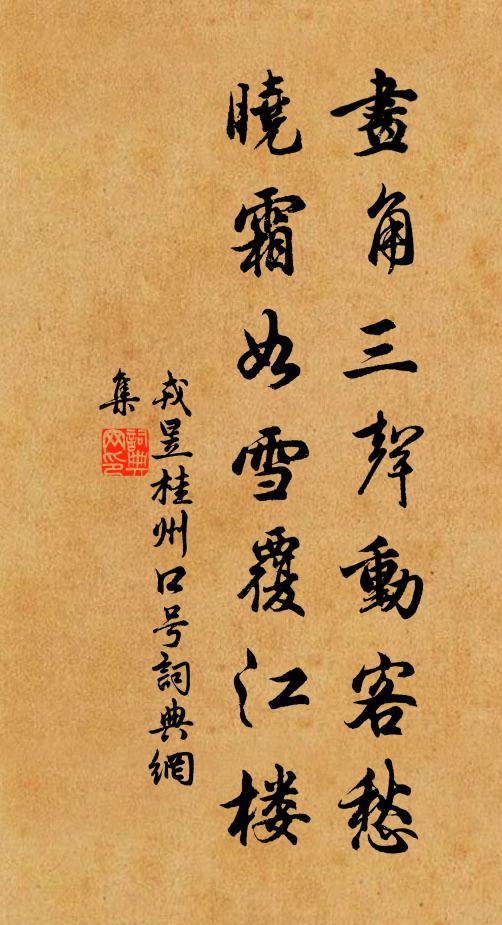 畫角三聲動客愁
曉霜如雪覆江楼
戎昱桂州口号詞典網
集
詞典网印